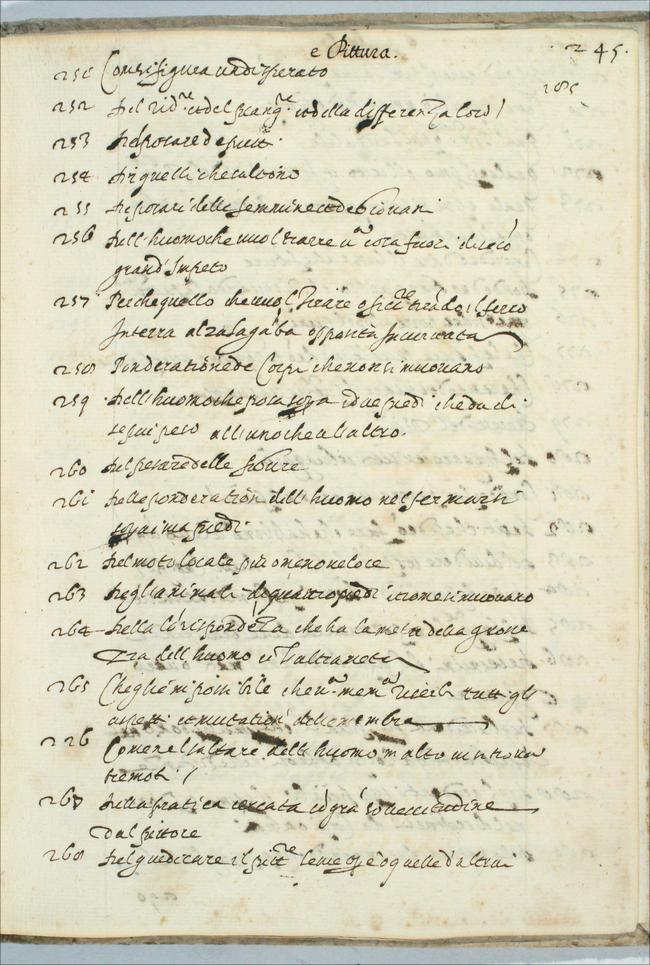 e Pittura. 245.
251 Come si figura un disperato
285
252 Del rid.re et del piang.re et della differenza loro /
253 Del posare de putti.
254 Di quelli che saltano
255 De posari delle femmine et de Giovani
256 Dell huomo che vuol trarre una cosa fuori di se cõ
grand' impeto
257 Perche quello che vuol tirare o ficcare tirãdo il ferro
In terra alza la gãba opposita incurvata
258 Ponderatiõne de Corpi che non si muovano
259 Dell huomo che posa sopra i due piedi che da di
se piu peso all uno che al altro.
260 Del posare delle figure
261 Delle ponderation dell huomo nel fermarsi
sopra i suoi piedi
262 Del moto locale piu o meno veloce
263 Degli animali di quattro piedi et come si muovano
264 Della corrispondẽza che ha la metà della grosse
zza dell huomo cõ l'altra metà
265 Che gl'è impossibile che una mem.a riserbi tutti gli
aspetti et mutationi delle membra
226 Come nel saltare dell huomo in alto vi si trova
tre moti /
267 Della pratica cercata cõ grã sollecitudine
Dal pittore
268 Del giudicare il pitt.re le sue op.e o quelle d'altrui